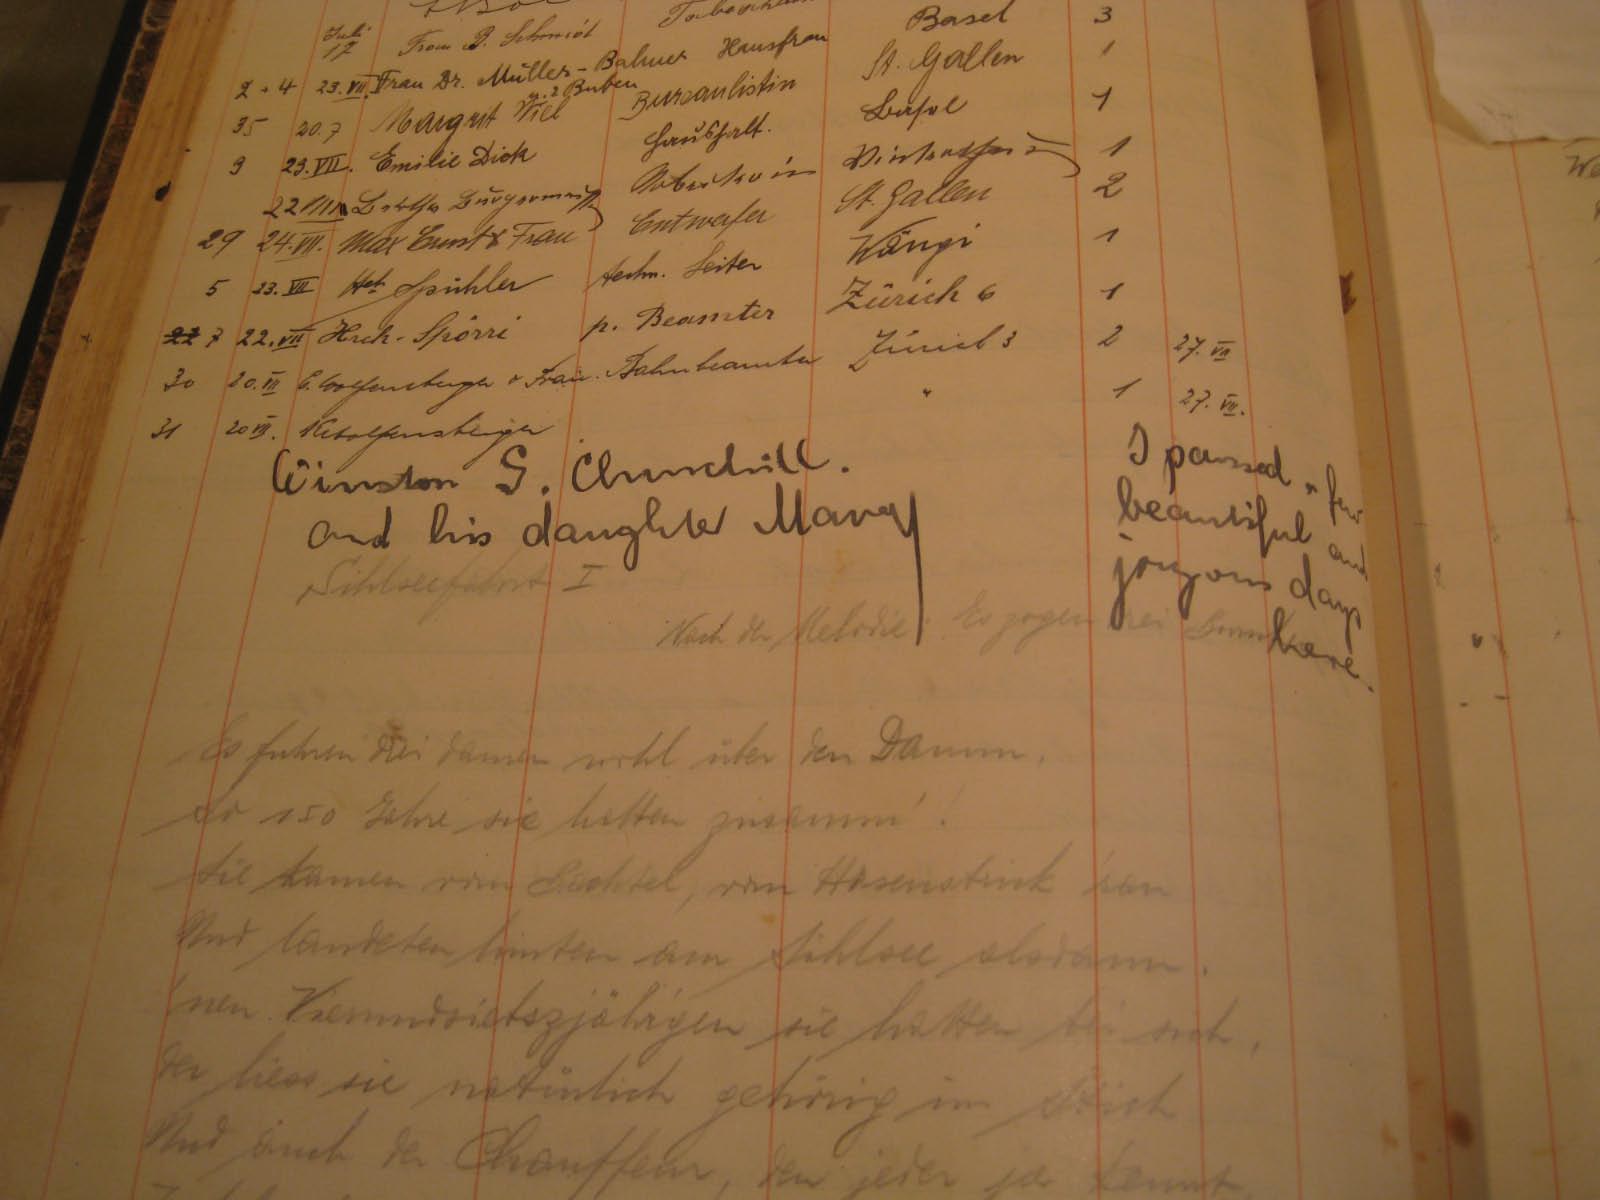 Juli
17 Frau B. Schmidt Basel 3
2 + 4 23. VII. Frau Dr. Müller - Bahner Hausfrau St. Gallen 1
u. 2 Buben
35 20.7 Margrit Viel Bureaulistin Basel 1
9 23. VII. Emilie Dick Haushalt. 1
22 VII 2
29 24. VII. Max Ernst & Frau Entwerfer St. Gallen
5 23. VII Hch Spühler techn. Leiter Wängi 1
22 7 22. VII Hch. Spörri p. Beamter Zürich 6 1
30 20. VII E. Wolfensberger & Frau. Bahnbeamter Zürich 3 2 27. VII
31 20 VII. Wolfensberger " 1 27. VII.
Winston S. Churchill.
and his daughter Mary
I passed a few
beautiful and
joyous days
here.
Sihlseefahrt I
Nach der Melodie: Es zogen drei
Es fuhren drei Damen wohl über den Damm,
So 150 Jahre sie hatten zusamm'!
Sie kamen vom Bachtel, vom Hasenstrick
Und landeten hinten am Sihlsee alsdann.
'nen Vierundsiebzigjährigen sie hatten bei sich,
der liess sie natürlich gehörig im Stich
Und auch der Chauffeur, den jeder ja kennt,